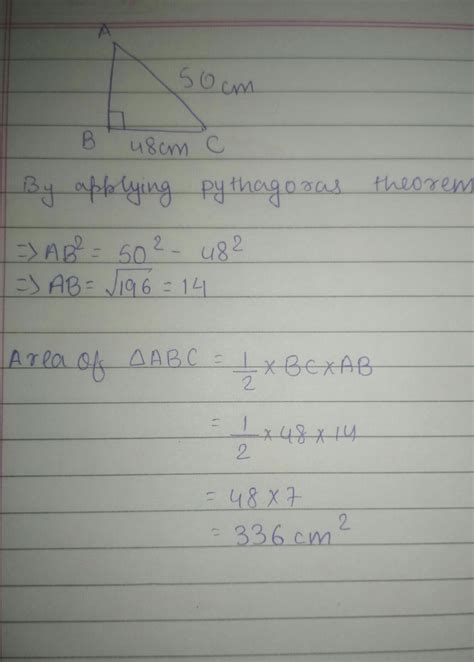 A
50cm
B 48cm C
By applying pythagoras theorem
⇒ AB² = 50² - 48²
⇒ AB = √196 = 14
Area of △ABC = 1/2 × BC × AB
= 1/2 × 48 × 14
= 48 × 7
= 336 cm²